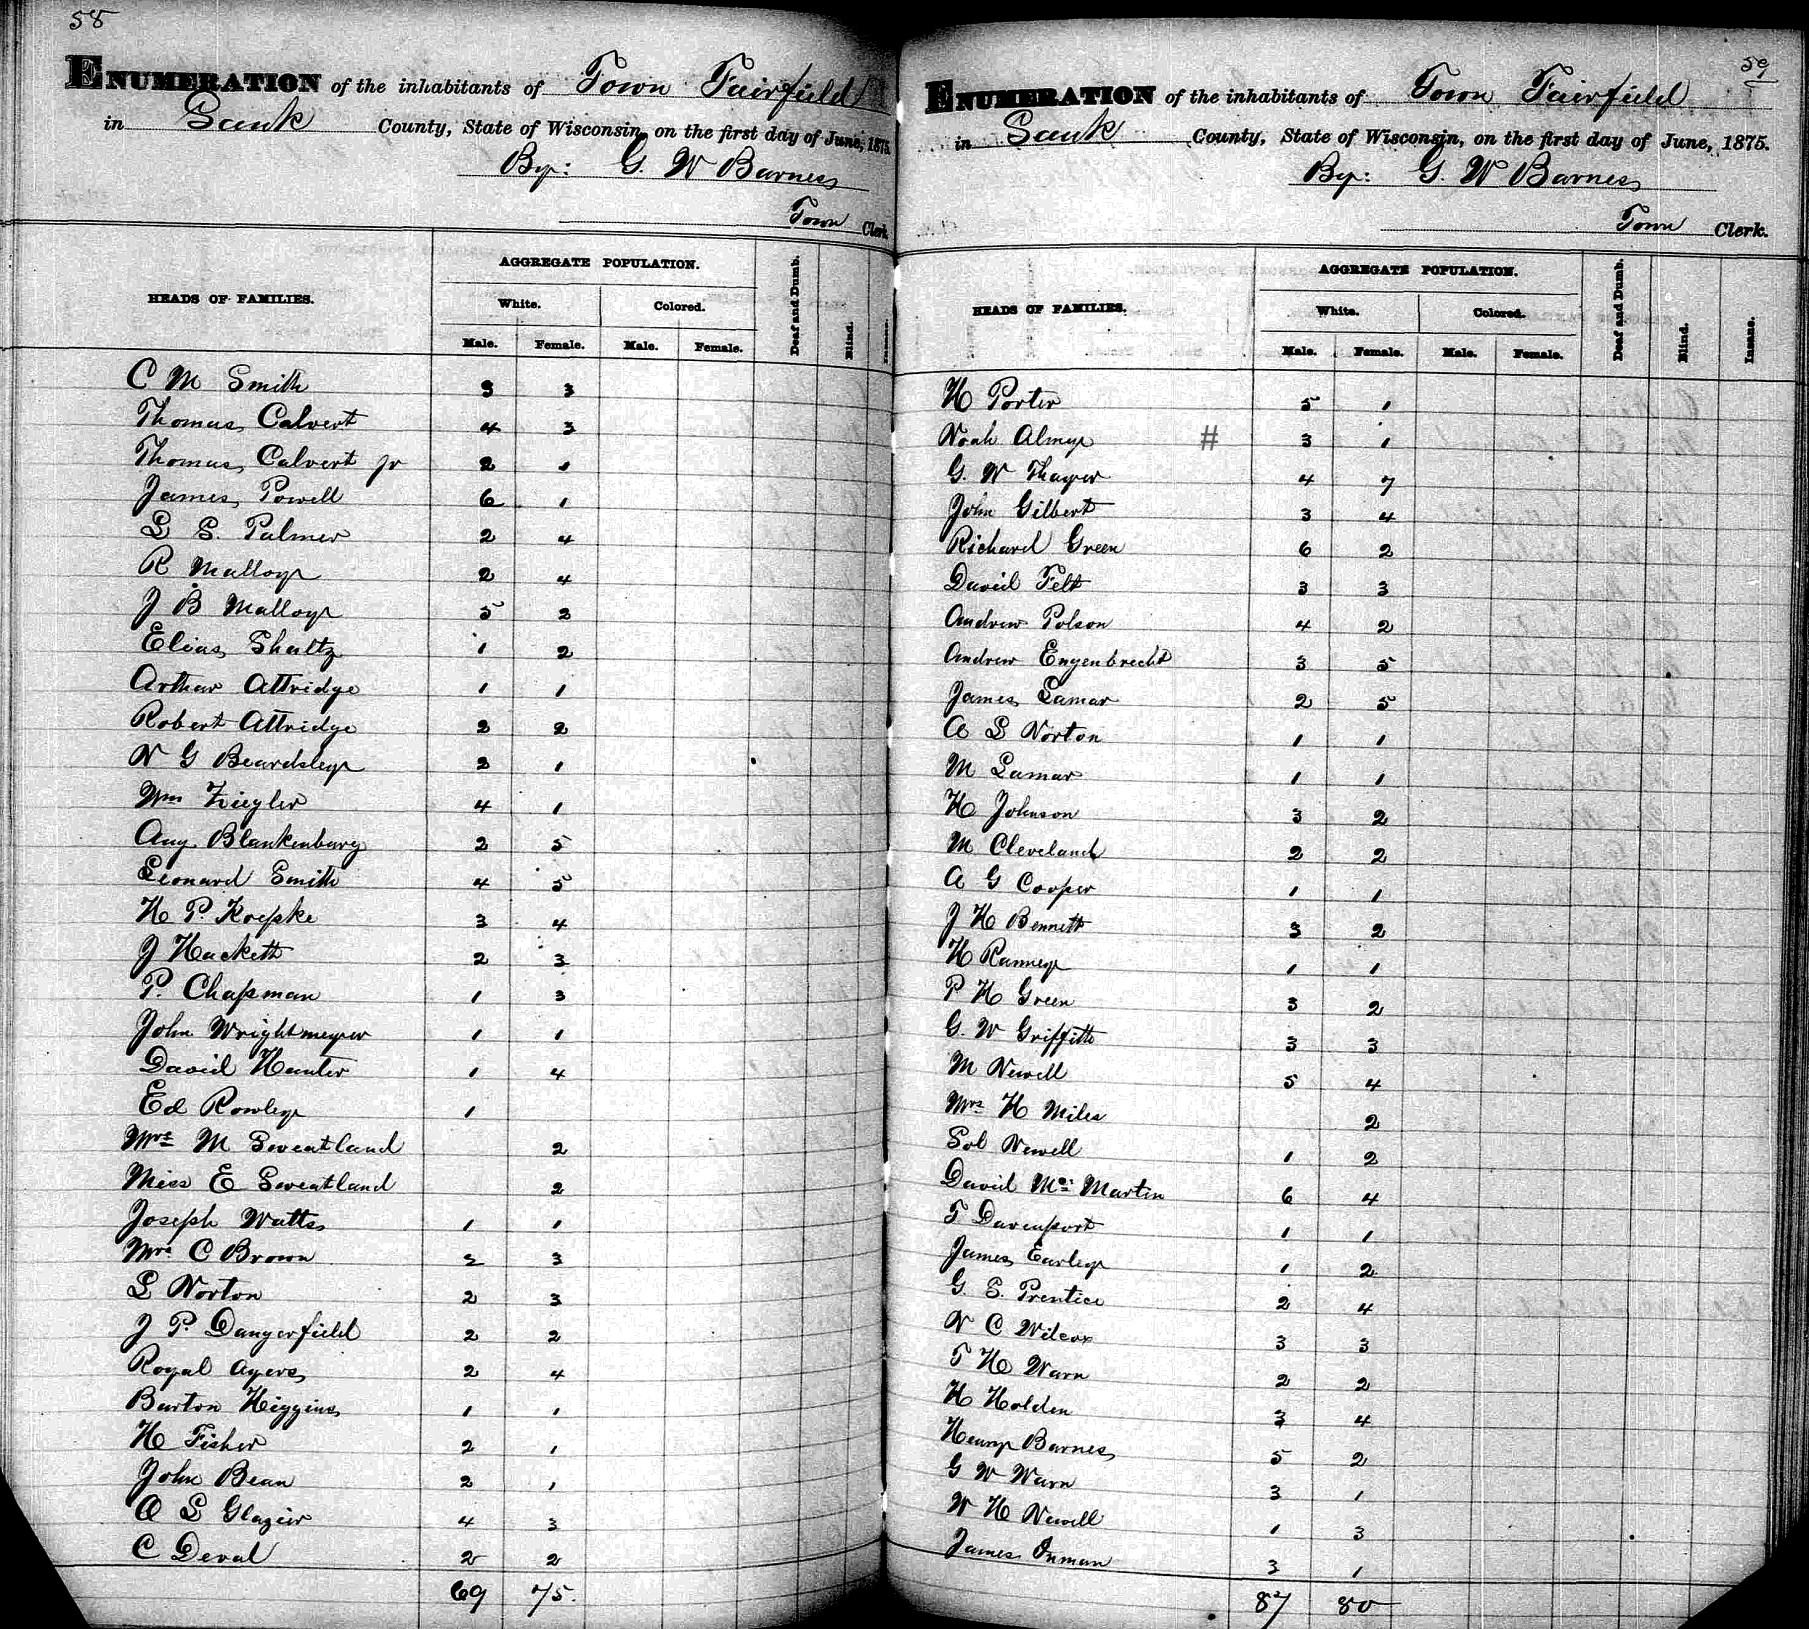 58
ENUMERATION of the inhabitants of Town Fairfield
in Sauk County, State of Wisconsin, on the first day of June, 1875.
By: G. W Barnes
Town Clerk.
HEADS OF FAMILIES.
AGGREGATE POPULATION.
White. Colored.
Male. Female. Male. Female. Deaf and Dumb. Blind. Insane.
C M Smith 3 3
Thomas Calvert 4 3
Thomas Calvert Jr 2 1
James Powell 6 1
L S. Palmer 2 4
R Malloy 2 4
J B Malloy 5 2
Elias Shultz 1 2
Arthur Attridge 1 1
Robert Attridge 2 2
N G Beardsley 2 1
Wm Ziegler 4 1
Aug. Blankenburg 2 5
Leonard Smith 4 5
H P. Koepke 3 4
J Hackett 2 3
P. Chapman 1 3
John Wrightmeyer 1 1
David Hunter 1 4
Ed Rowley 1
Mrs M Sweatland 2
Miss E Sweatland 2
Joseph Watts 1 1
Mrs C Brown 2 3
L Norton 2 3
J P. Dangerfield 2 2
Royal Ayers 2 4
Burton Higgins 1 1
H Fisher 2 1
John Bean 2 1
O L Glazier 4 3
C Deval 2 2
69 75.
59
ENUMERATION of the inhabitants of Town Fairfield
in Sauk County, State of Wisconsin, on the first day of June, 1875.
By: G. W Barnes
Town Clerk.
HEADS OF FAMILIES.
AGGREGATE POPULATION.
White. Colored.
Male. Female. Male. Female. Deaf and Dumb. Blind. Insane.
H Porter 5 1
Noah Almy # 3 1
G. W Thayer 4 7
John Gilbert 3 4
Richard Green 6 2
David Felt 3 3
Andrew Polson 4 2
Andrew Engenbrecht 3 5
James Lamar 2 5
A L Norton 1 1
M Lamar 1 1
H Johnson 3 2
M Cleveland 2 2
A G Cooper 1 1
J H Bennett 3 2
H Ranney 1 1
P H Green 3 2
G. W Griffith 3 3
M Newell 5 4
Mrs H Miles 2
Sol Newell 1 2
David Mc Martin 6 4
T Davenport 1 1
James Earley 1 2
G. S. Prentice 2 4
N C Wilcox 3 3
T H Warn 2 2
H Holden 3 4
Henry Barnes 5 2
G W Warn 3 1
W H Newell 1 3
James Inman 3 1
87 80